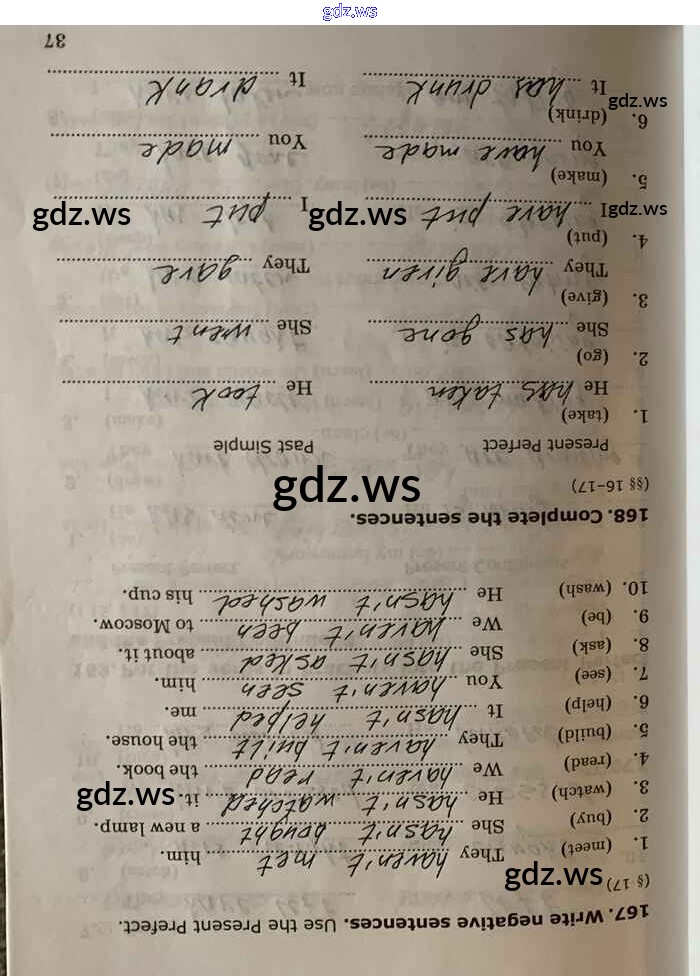 gdz.ws
167. Write negative sentences. Use the Present Prefect.
(§ 17)
gdz.ws
1. (meet) They haven't met him.
2. (buy) She hasn't bought a new lamp.
3. (watch) He hasn't watched it.
gdz.ws
4. (read) We haven't read the book.
5. (build) They haven't built the house.
6. (help) It hasn't helped me.
7. (see) You haven't seen him.
8. (ask) She hasn't asked about it.
9. (be) We haven't been to Moscow.
10. (wash) He hasn't washed his cup.
168. Complete the sentences.
(§§ 16–17)
gdz.ws
Present Perfect Past Simple
1. (take)
He has taken He took
2. (go)
She has gone She went
3. (give)
They have given They gave
4. (put)
I have put I put
gdz.ws gdz.ws gdz.ws
5. (make)
You have made You made
6. (drink)
It has drunk It drank
gdz.ws
37